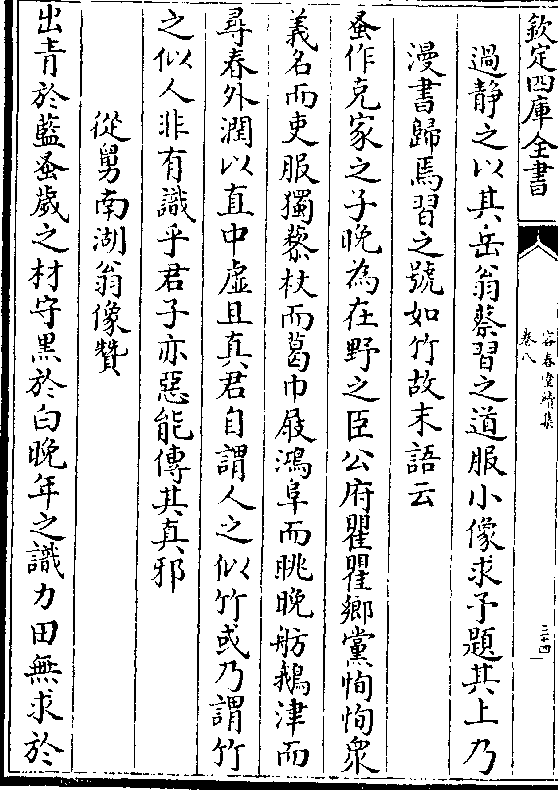 欽定四庫全書
容春堂續集
卷八
三十四
過静之以其岳翁蔡習之道服小像求予題其上乃
漫書歸焉習之號如竹故末語云
蚤作克家之子晚為在野之臣公府瞿瞿鄉黨恂恂衆
義名而吏服獨藜杖而葛巾屐鴻阜而眺晚舫鵝津而
尋春外潤以直中虛且真君自謂人之似竹或乃謂竹
之似人非有識乎君子亦惡能傳其真邪
從舅南湖翁像贊
出青於藍蚤歲之材守黒於白晚年之識力田無求於